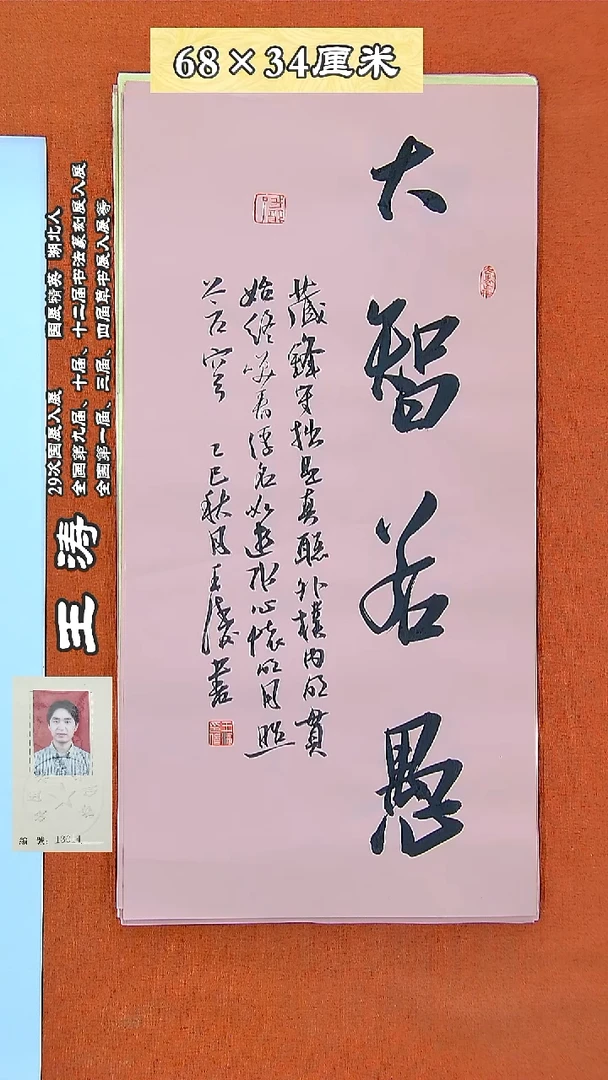 68×34厘米
大智若愚
藏鋒守拙是真聰外樸内明貫
始終笑看浮名如逝水心懷明月照
蒼穹 乙巳秋月王濤書
29次国展入展 国展精英 湖北人
全国第九届、十届、十二届书法篆刻展入展
全国第一届、三届、四届草书展入展等
王涛
編號：